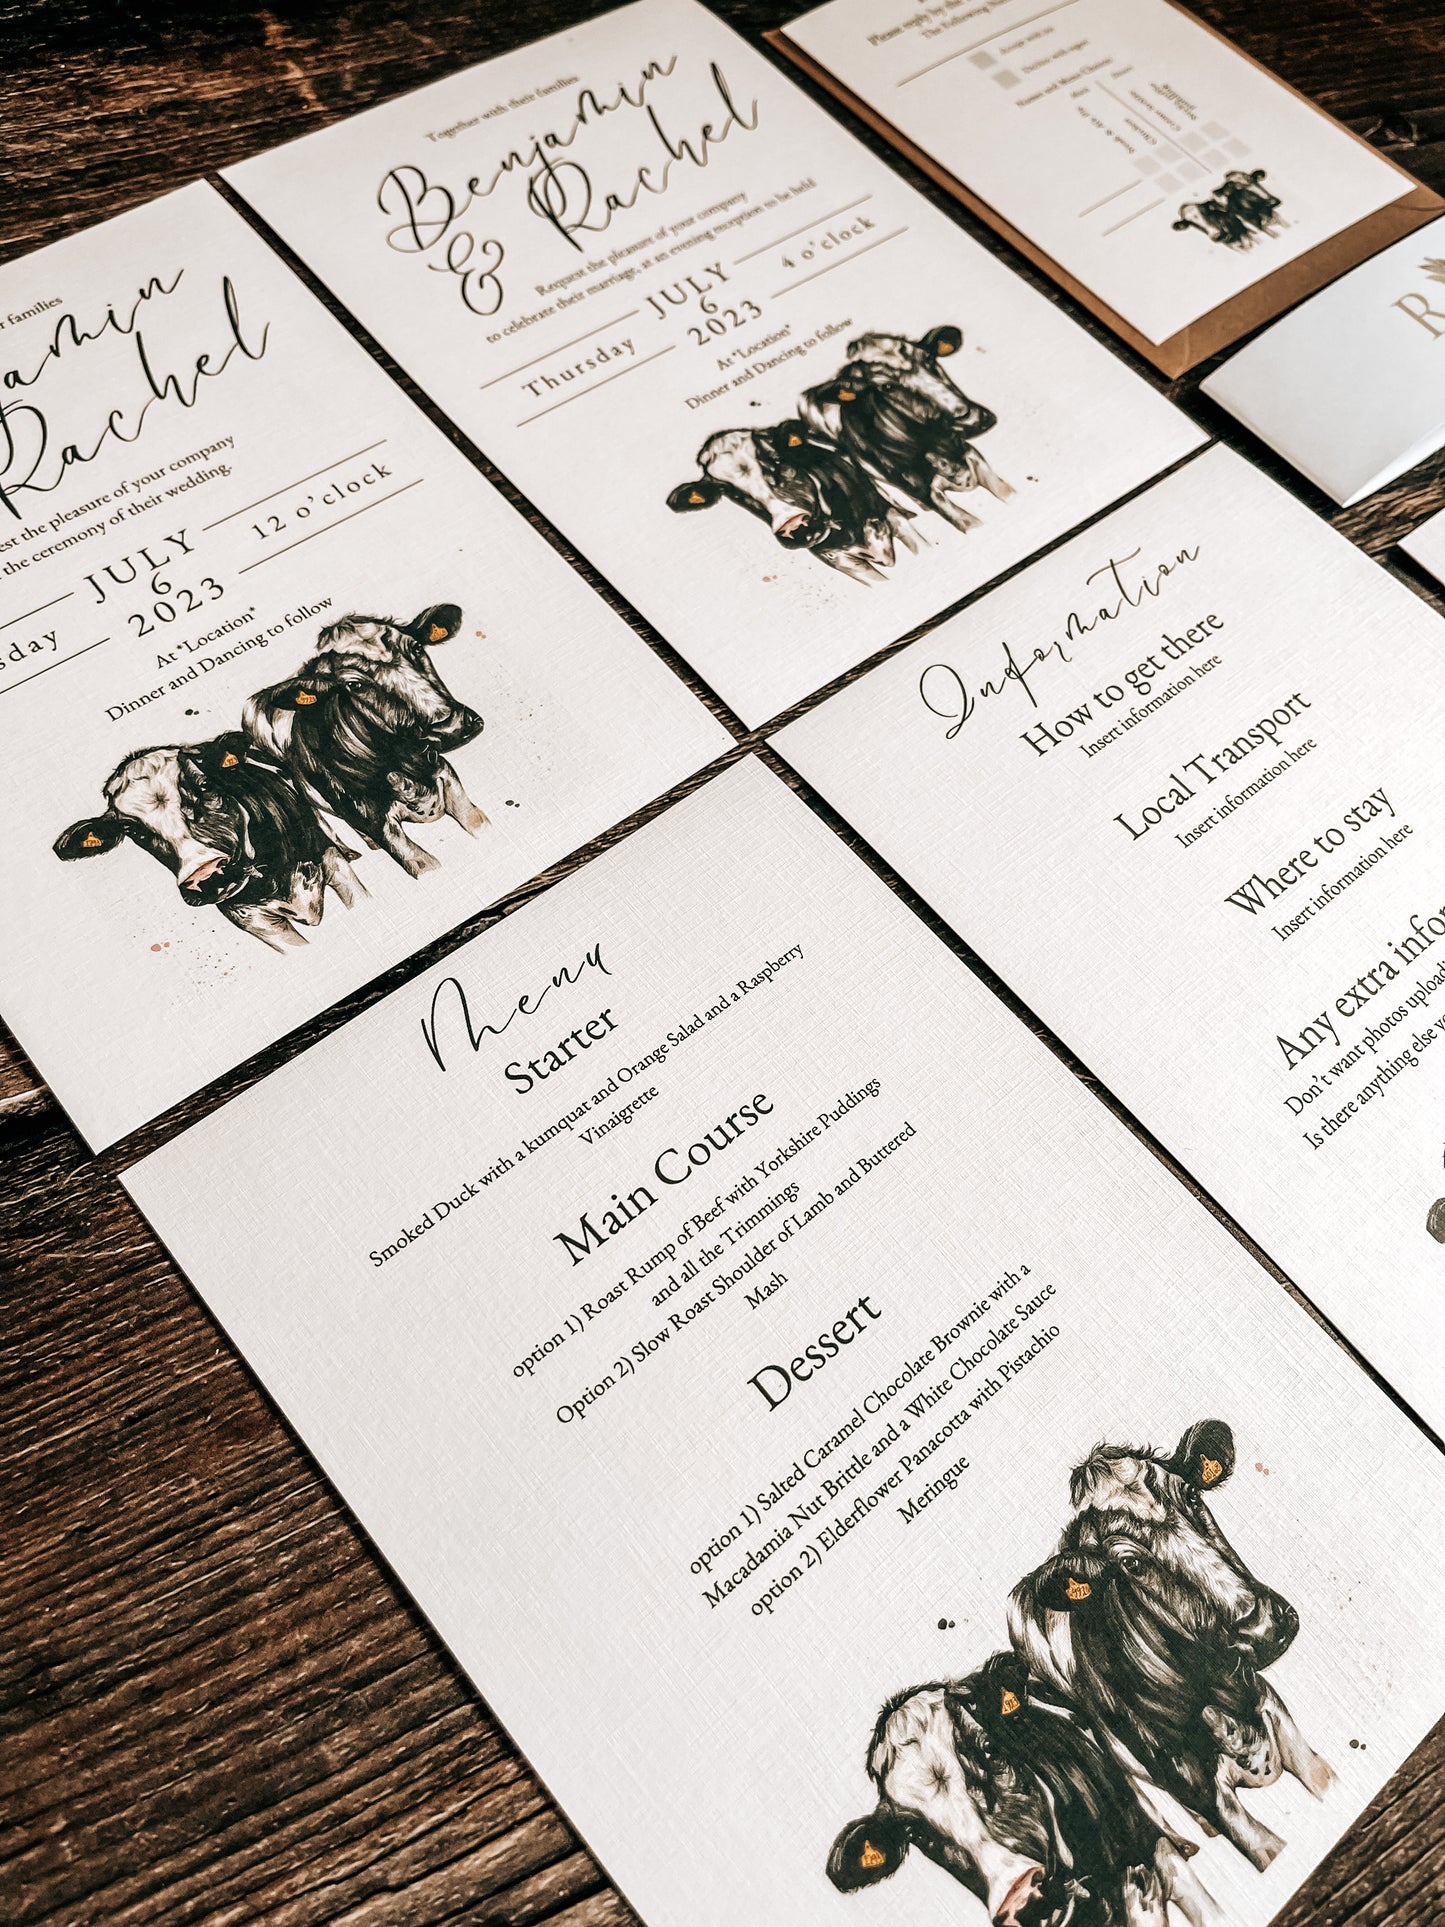 Together with their families
Benjamin
& Rachel
Request the pleasure of your company
to celebrate their marriage, at an evening reception to be held
JULY
Thursday 6 4 o'clock
2023
At *Location*
Dinner and Dancing to follow
families
amin
Rachel
the pleasure of your company
the ceremony of their wedding.
JULY
sday 6 12 o'clock
2023
At *Location*
Dinner and Dancing to follow
Please reply by the
The Following
R
Information
How to get there
Insert information here
Local Transport
Insert information here
Where to stay
Insert information here
Any extra infor
Don't want photos uploadi
Is there anything else yo
Menu
Starter
Smoked Duck with a kumquat and Orange Salad and a Raspberry
Vinaigrette
Main Course
option 1) Roast Rump of Beef with Yorkshire Puddings
and all the Trimmings
Option 2) Slow Roast Shoulder of Lamb and Buttered
Mash
Dessert
option 1) Salted Caramel Chocolate Brownie with a
Macadamia Nut Brittle and a White Chocolate Sauce
option 2) Elderflower Panacotta with Pistachio
Meringue